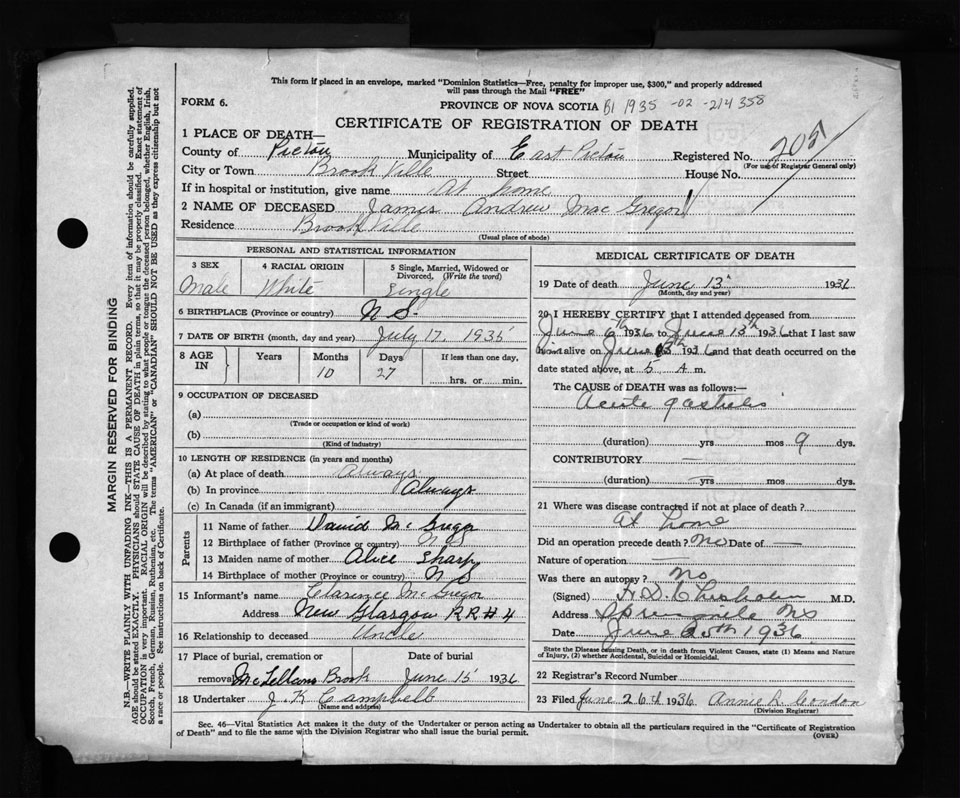 This form if placed in an envelope, marked "Dominion Statistics—Free, penalty for improper use, $300," and properly addressed
will pass through the Mail "FREE"
FORM 6.
PROVINCE OF NOVA SCOTIA B1 1935 -02 -214358
CERTIFICATE OF REGISTRATION OF DEATH
1 PLACE OF DEATH—
County of Pictou Municipality of East Pictou Registered No. 205
(For use of Registrar General only)
City or Town Brook Ville Street House No.
If in hospital or institution, give name At home
2 NAME OF DECEASED James Andrew Mac Gregor
Residence Brook Ville
(Usual place of abode)
PERSONAL AND STATISTICAL INFORMATION
3 SEX 4 RACIAL ORIGIN 5 Single, Married, Widowed or Divorced. (Write the word)
Male White Single
6 BIRTHPLACE (Province or country) N S.
7 DATE OF BIRTH (month, day and year) July 17. 1935
8 AGE IN Years Months Days If less than one day,
10 27 hrs. or min.
9 OCCUPATION OF DECEASED
(a)
(Trade or occupation or kind of work)
(b)
(Kind of industry)
10 LENGTH OF RESIDENCE (in years and months)
(a) At place of death Always
(b) In province Always
(c) In Canada (if an immigrant)
Parents
11 Name of father David McGregor
12 Birthplace of father (Province or country) N S
13 Maiden name of mother Alice Sharp
14 Birthplace of mother (Province or country) N S
15 Informant's name Clarence McGregor
Address New Glasgow RR#4
16 Relationship to deceased Uncle
17 Place of burial, cremation or Date of burial
removal McLellans Brook June 15 1936
18 Undertaker J. K Campbell
(Name and address)
MEDICAL CERTIFICATE OF DEATH
19 Date of death June 13 1936
(Month, day and year)
20 I HEREBY CERTIFY that I attended deceased from
June 6th 1936 to June 13th 1936 that I last saw
him alive on June 13th 1936 and that death occurred on the
date stated above, at 5 A m.
The CAUSE OF DEATH was as follows:—
Acute gastritis
(duration) yrs mos 9 dys.
CONTRIBUTORY —
(duration) — yrs mos dys.
21 Where was disease contracted if not at place of death?
At home
Did an operation precede death? No Date of —
Nature of operation —
Was there an autopsy? No
(Signed) H. D. Chisholm M.D.
Address Springville NS
Date June 25th 1936
State the Disease causing Death, or in death from Violent Causes, state (1) Means and Nature
of Injury, (2) whether Accidental, Suicidal or Homicidal.
22 Registrar's Record Number
23 Filed June 26th 1936 Annie R.
(Division Registrar)
Sec. 46—Vital Statistics Act makes it the duty of the Undertaker or person acting as Undertaker to obtain all the particulars required in the "Certificate of Registration
of Death" and to file the same with the Division Registrar who shall issue the burial permit.
(OVER)
MARGIN RESERVED FOR BINDING
N.B.—WRITE PLAINLY WITH UNFADING INK—THIS IS A PERMANENT RECORD. Every item of information should be carefully supplied.
AGE should be stated EXACTLY. PHYSICIANS should STATE CAUSE OF DEATH in plain terms, so that it may be properly classified. Exact statement of
OCCUPATION is very important. RACIAL ORIGIN will be described by stating to what people or tongue the deceased person belonged, whether English, Irish,
Scotch, French, German, Russian, Ruthenian, etc. The terms "AMERICAN" or "CANADIAN" SHOULD NOT BE USED as they express citizenship but not
a race or people. See instructions on back of Certificate.